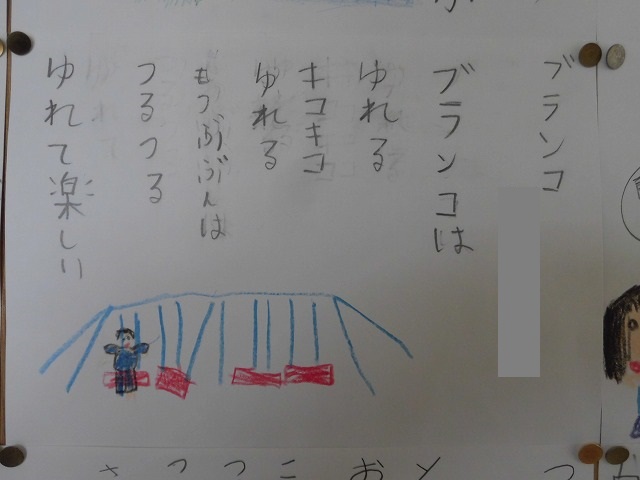 ブランコ
ブランコは
ゆれる
キコキコ
ゆれる
もつぶぶんは
つるつる
ゆれて楽しい